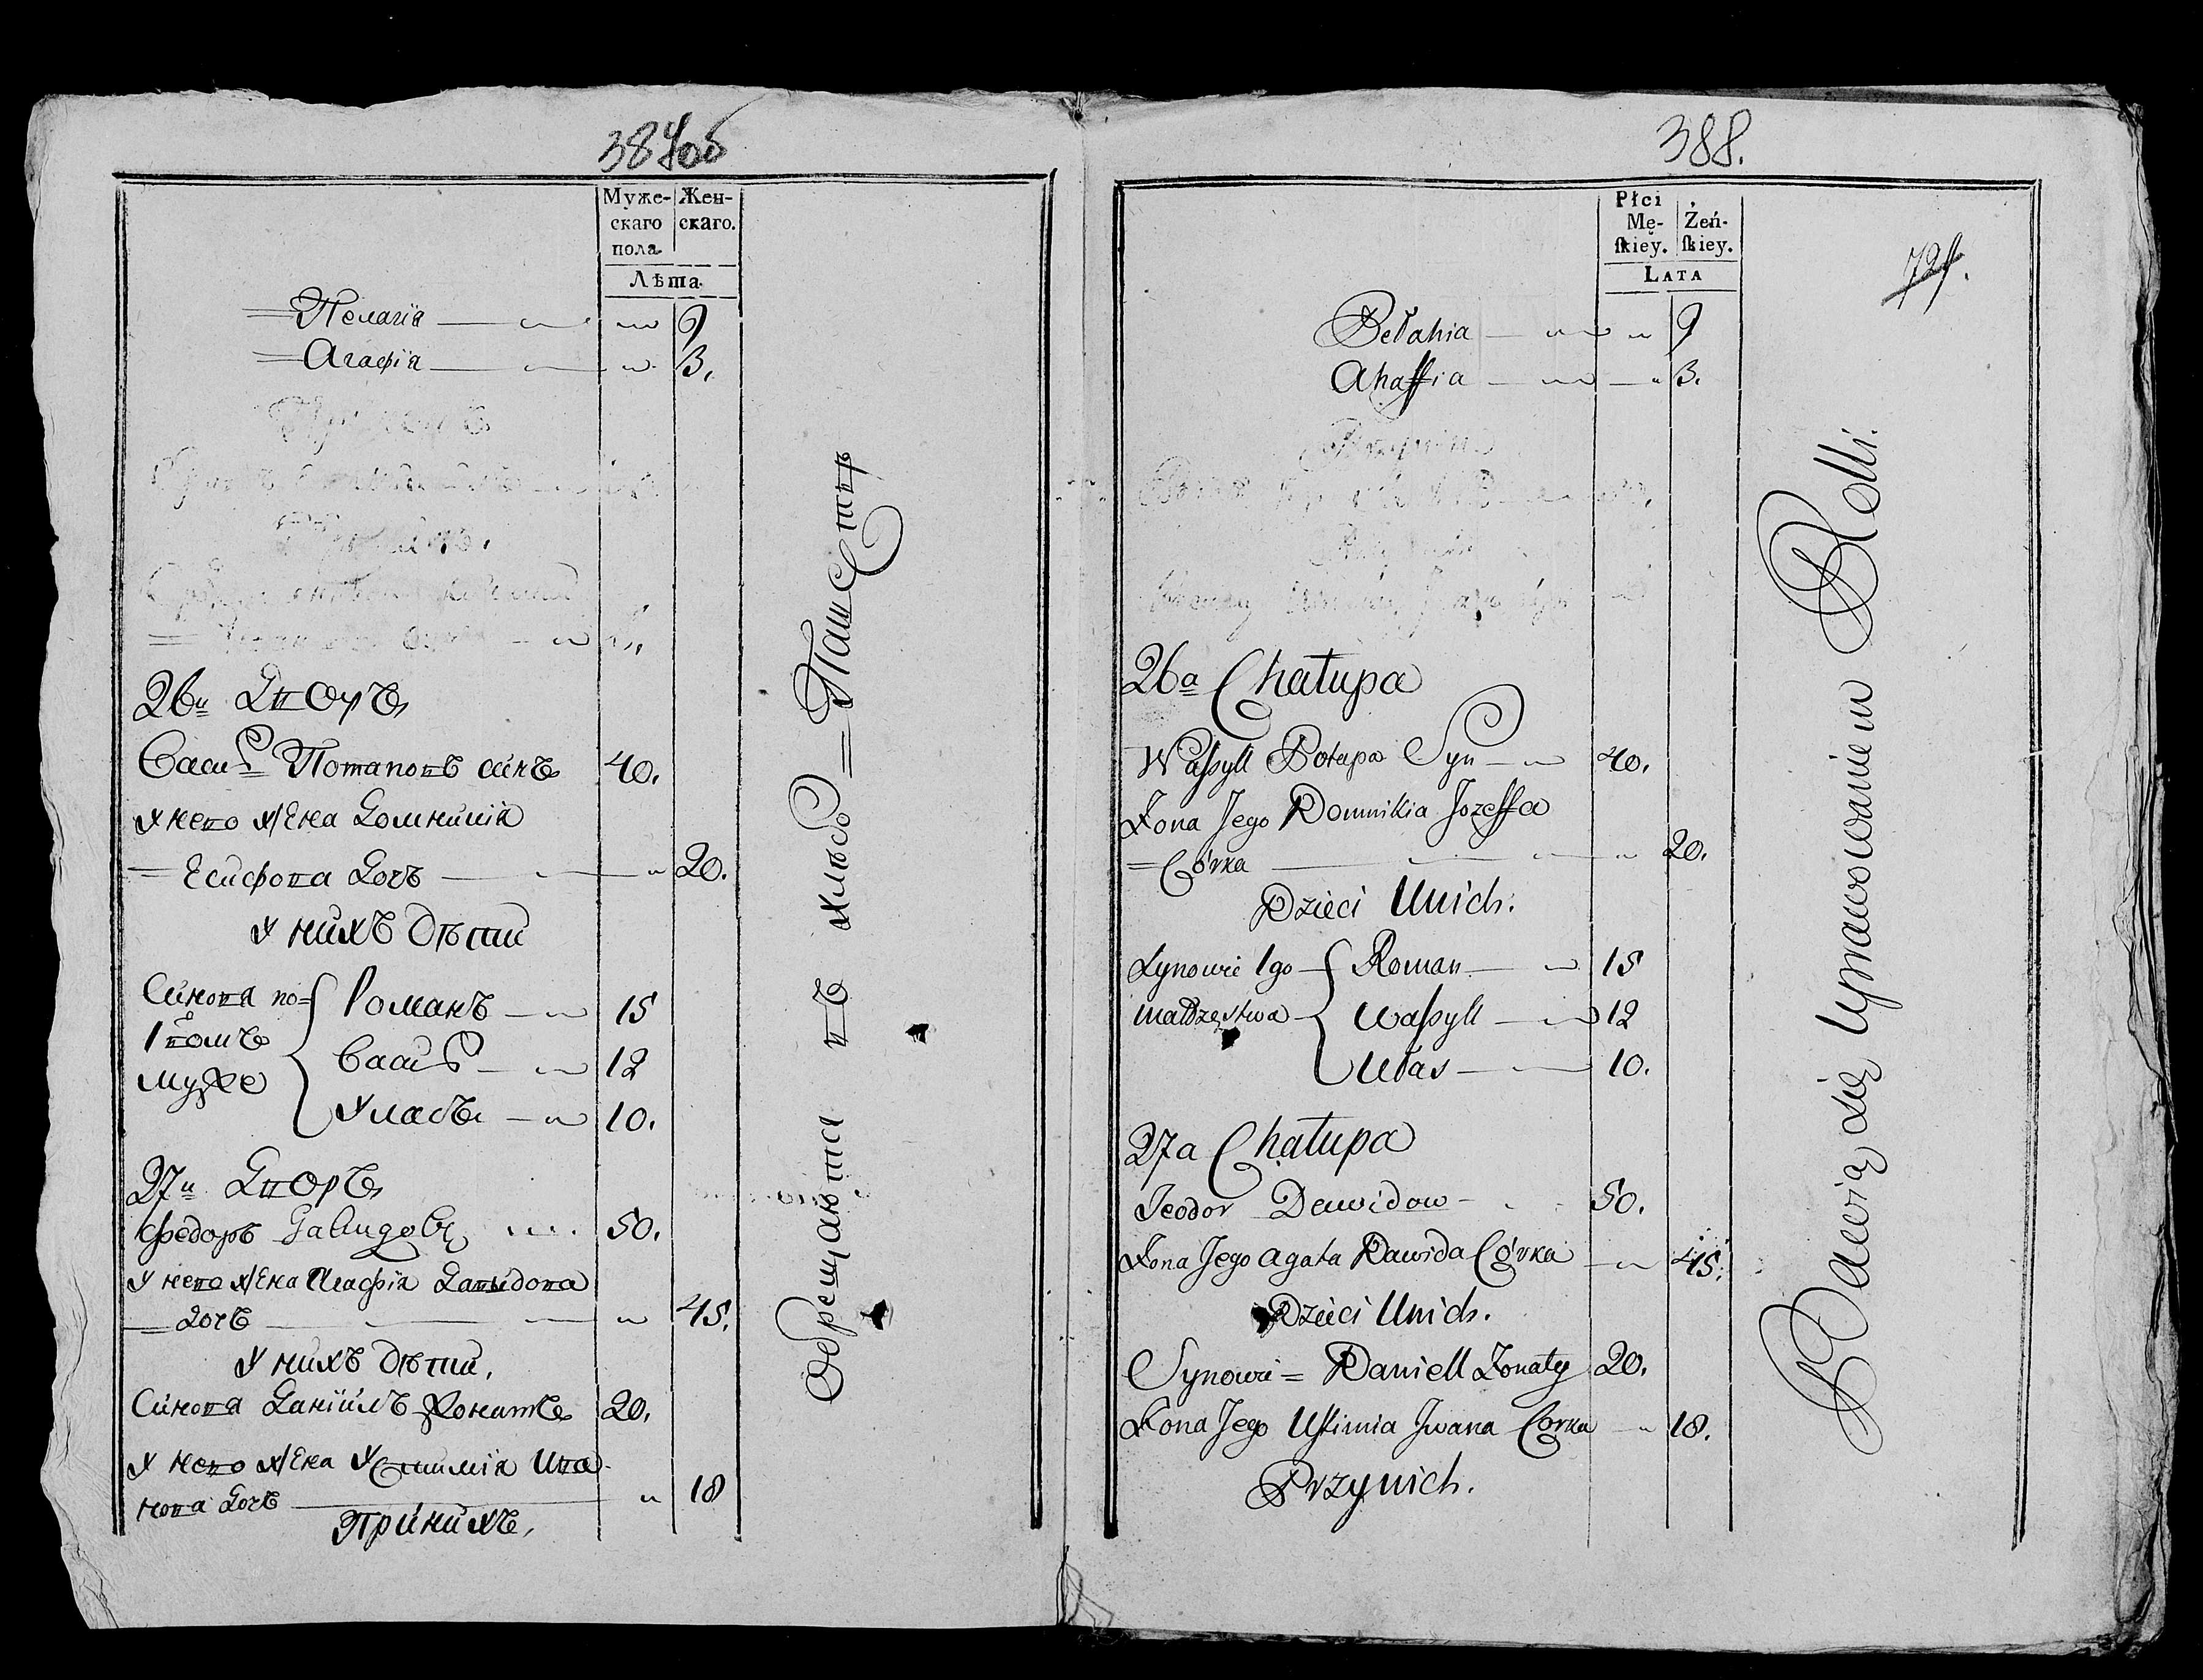 387об
Муже-
скаго
пола.
Жен-
скаго.
Лѣта.
Пелагія 9
Агафія 3.
26й Дворъ
Васил Потаповъ синъ 40.
У него жена Домникія
Есифова Дочъ 20.
У нихъ Дѣти
Синовя по
1вомъ
муже
Романъ 15
Васил 12
Уласъ 10.
27й Дворъ
Федоръ Давидовъ 50.
У него жена Агафія Давидова
Дочъ 45.
У нихъ Дѣти,
Синовя Даніилъ Жонатъ 20.
У него жена Устимія Ива
нова Дочъ 18
При нихъ,
Обрещаюта въ хлѣбо=Пашествѣ
388.
Płci
Mę-
ſkiey.
Żeń-
ſkiey.
LATA
729.
Pelahia 9
Ahaffia 3.
26a Chałupa
Waſsyll Potapa Syn 40.
Żona Jego Domnikia Jozeffa
Córka 20.
Dzieci Unich.
Synowie 1go
małdzęstwa
Roman 15
Waſsyll 12
Ułas 10.
27a Chałupa
Teodor Dawidow 50.
Żona Jego Agata Dawida Córka 45.
Dzieci Unich.
Synowie = Daniell Żonaty 20.
Żona Jego Uſtimia Jwana Corka 18.
Przynich.
Bawią się Uprawowaniem Rolli.